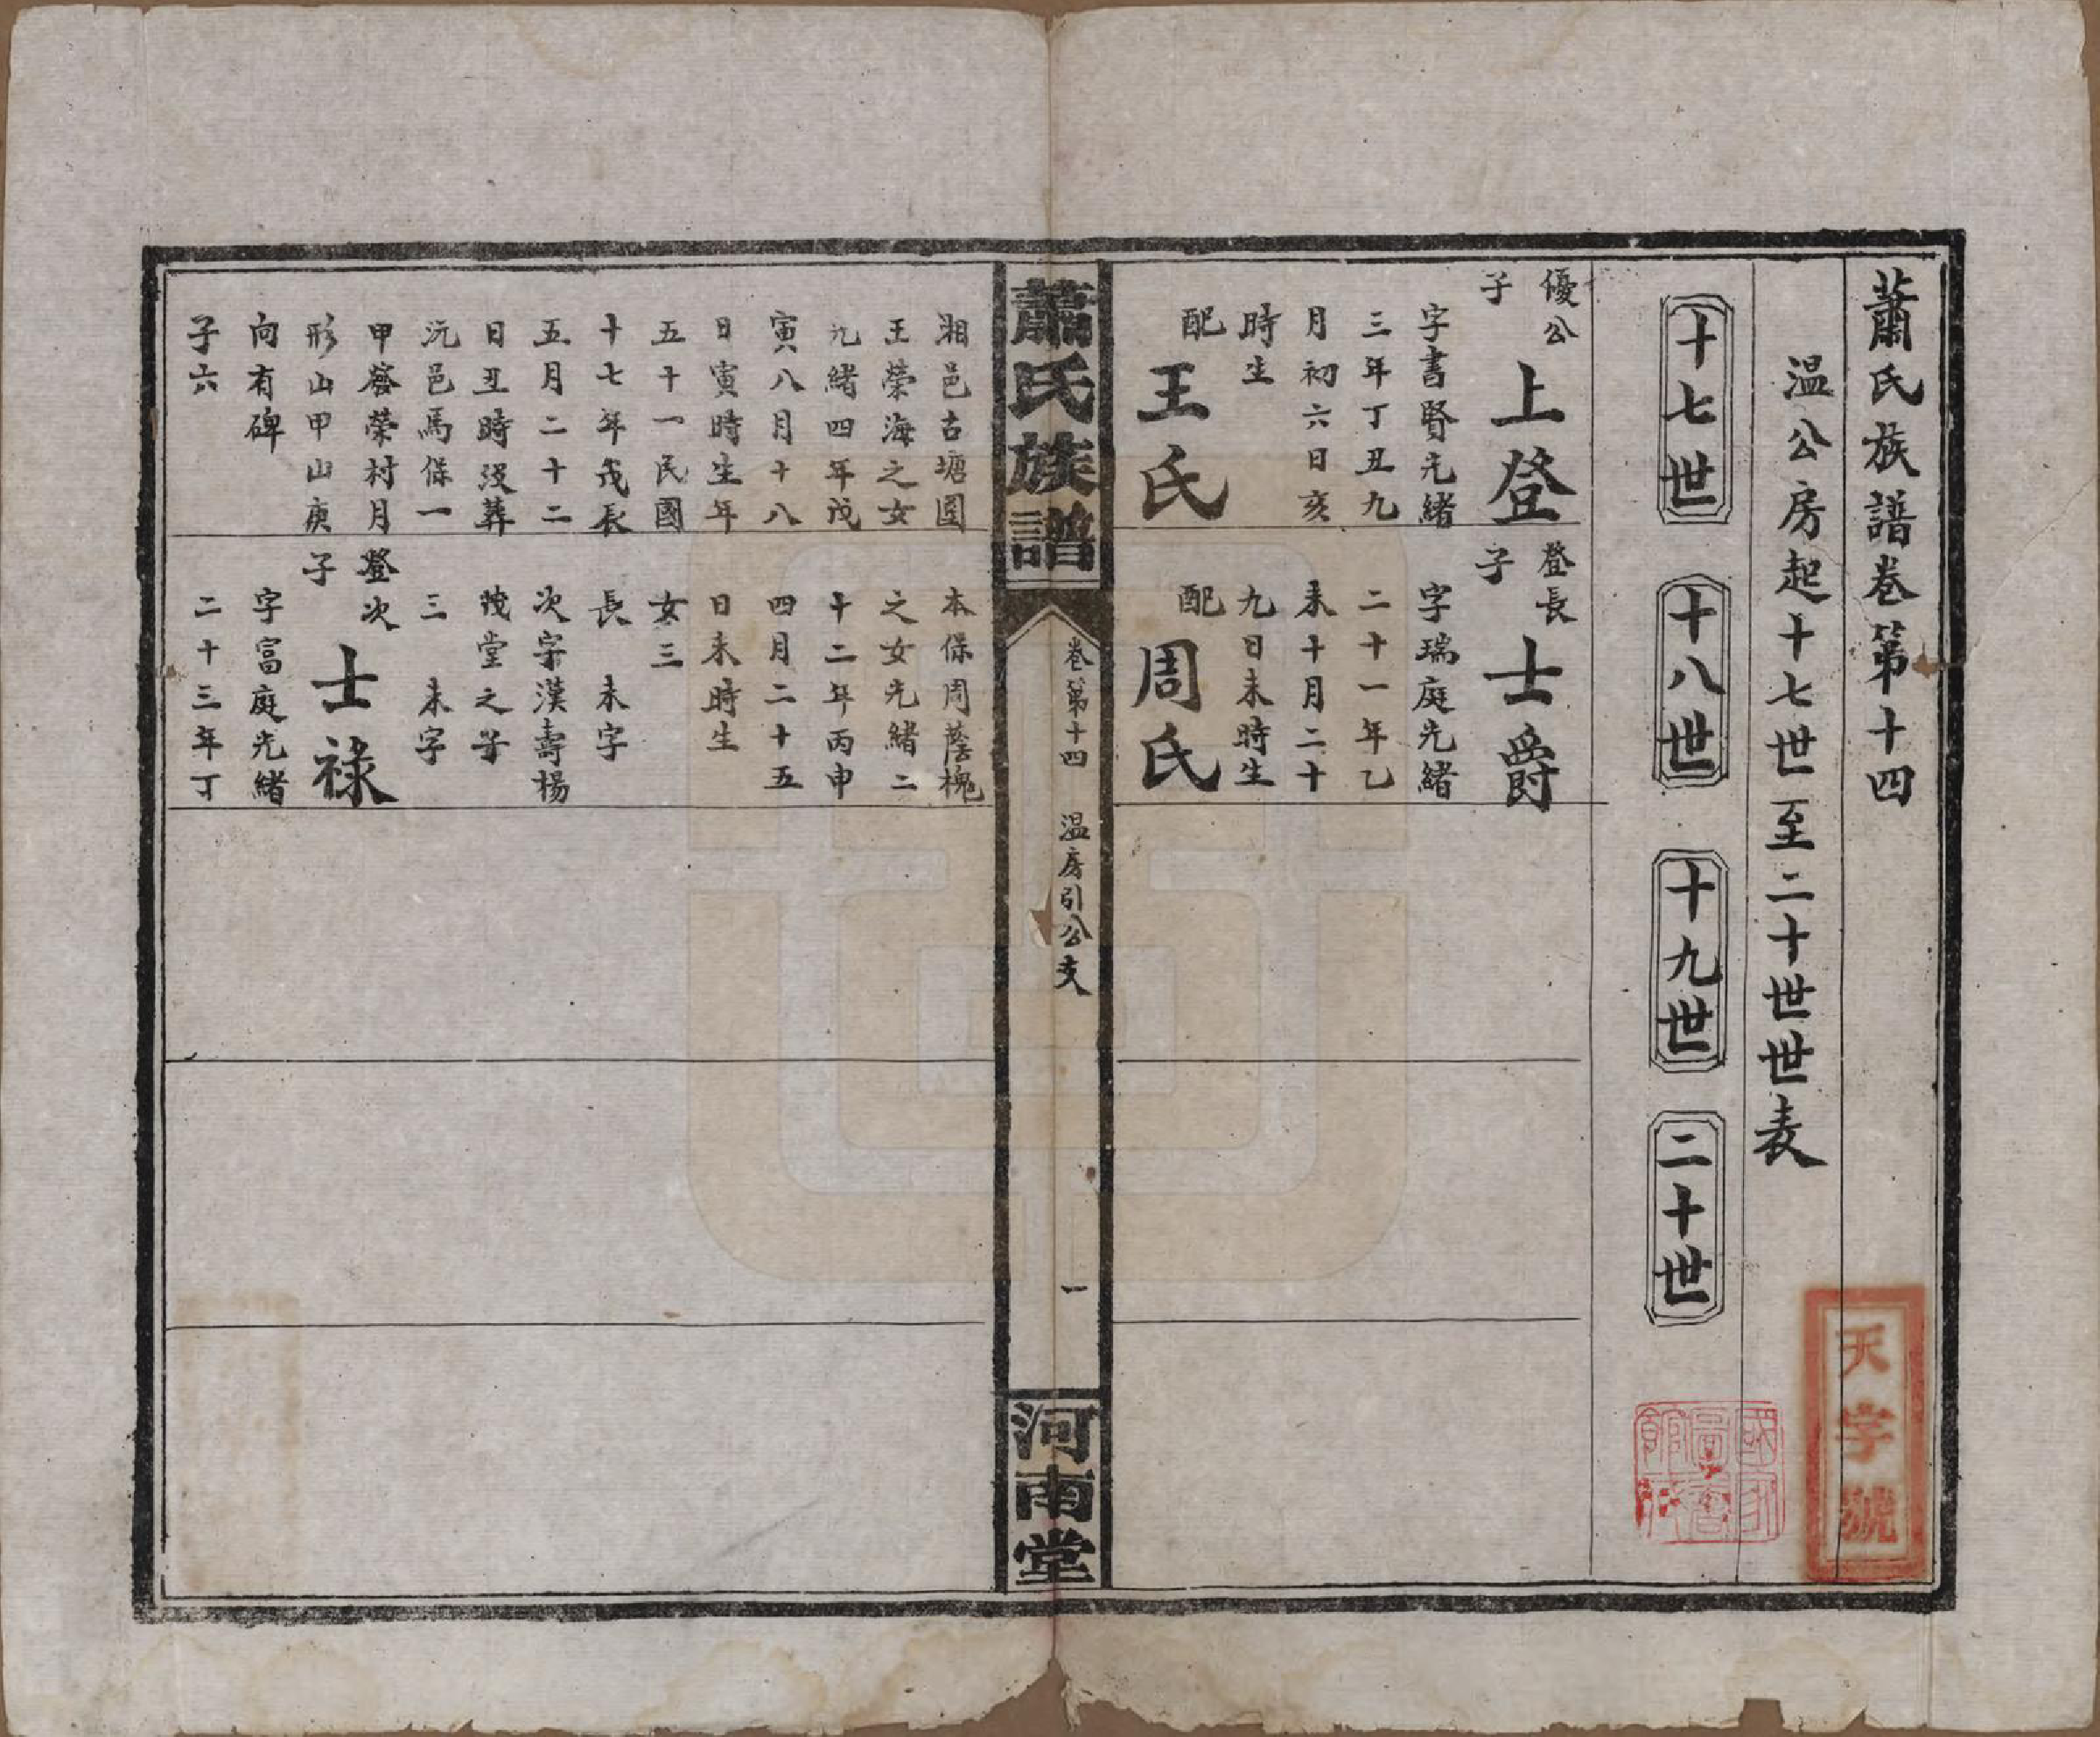 蕭氏族譜卷第十四
温公房起十七世至二十世世表
十七世
十八世
十九世
二十世
優公
子
上登
字書賢光緒
三年丁丑九
月初六日亥
時生
配
王氏
登長
子
士爵
字瑞庭光緒
二十一年乙
未十月二十
九日未時生
配
周氏
蕭氏族譜
卷第十四 温房引公支
一
河南堂
湘邑古塘圍
王榮海之女
光緒四年戊
寅八月十八
日寅時生年
五十一民國
十七年戊辰
五月二十二
日丑時没葬
沅邑馬保一
甲 榮村月
形山甲山庚
向有碑
子六
本保周蔭槐
之女光緒二
十二年丙申
四月二十五
日未時生
女三
長 未字
次字漢壽楊
茂堂之子
三 未字
登次
子
士祿
字富庭光緒
二十三年丁
天字號
國家圖書館藏